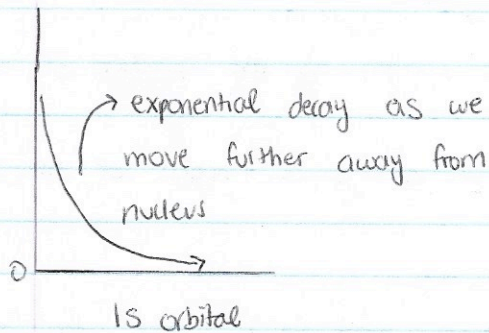 exponential decay as we
move further away from
nucleus
0
1s orbital